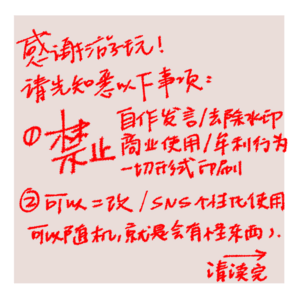 感谢游玩!
请先知悉以下事项:
①禁止 自作发言/去除水印
商业使用/牟利行为
一切形式印刷
②可以二改/SNS个性化使用
可以随机,就是会有怪东西).
请读完